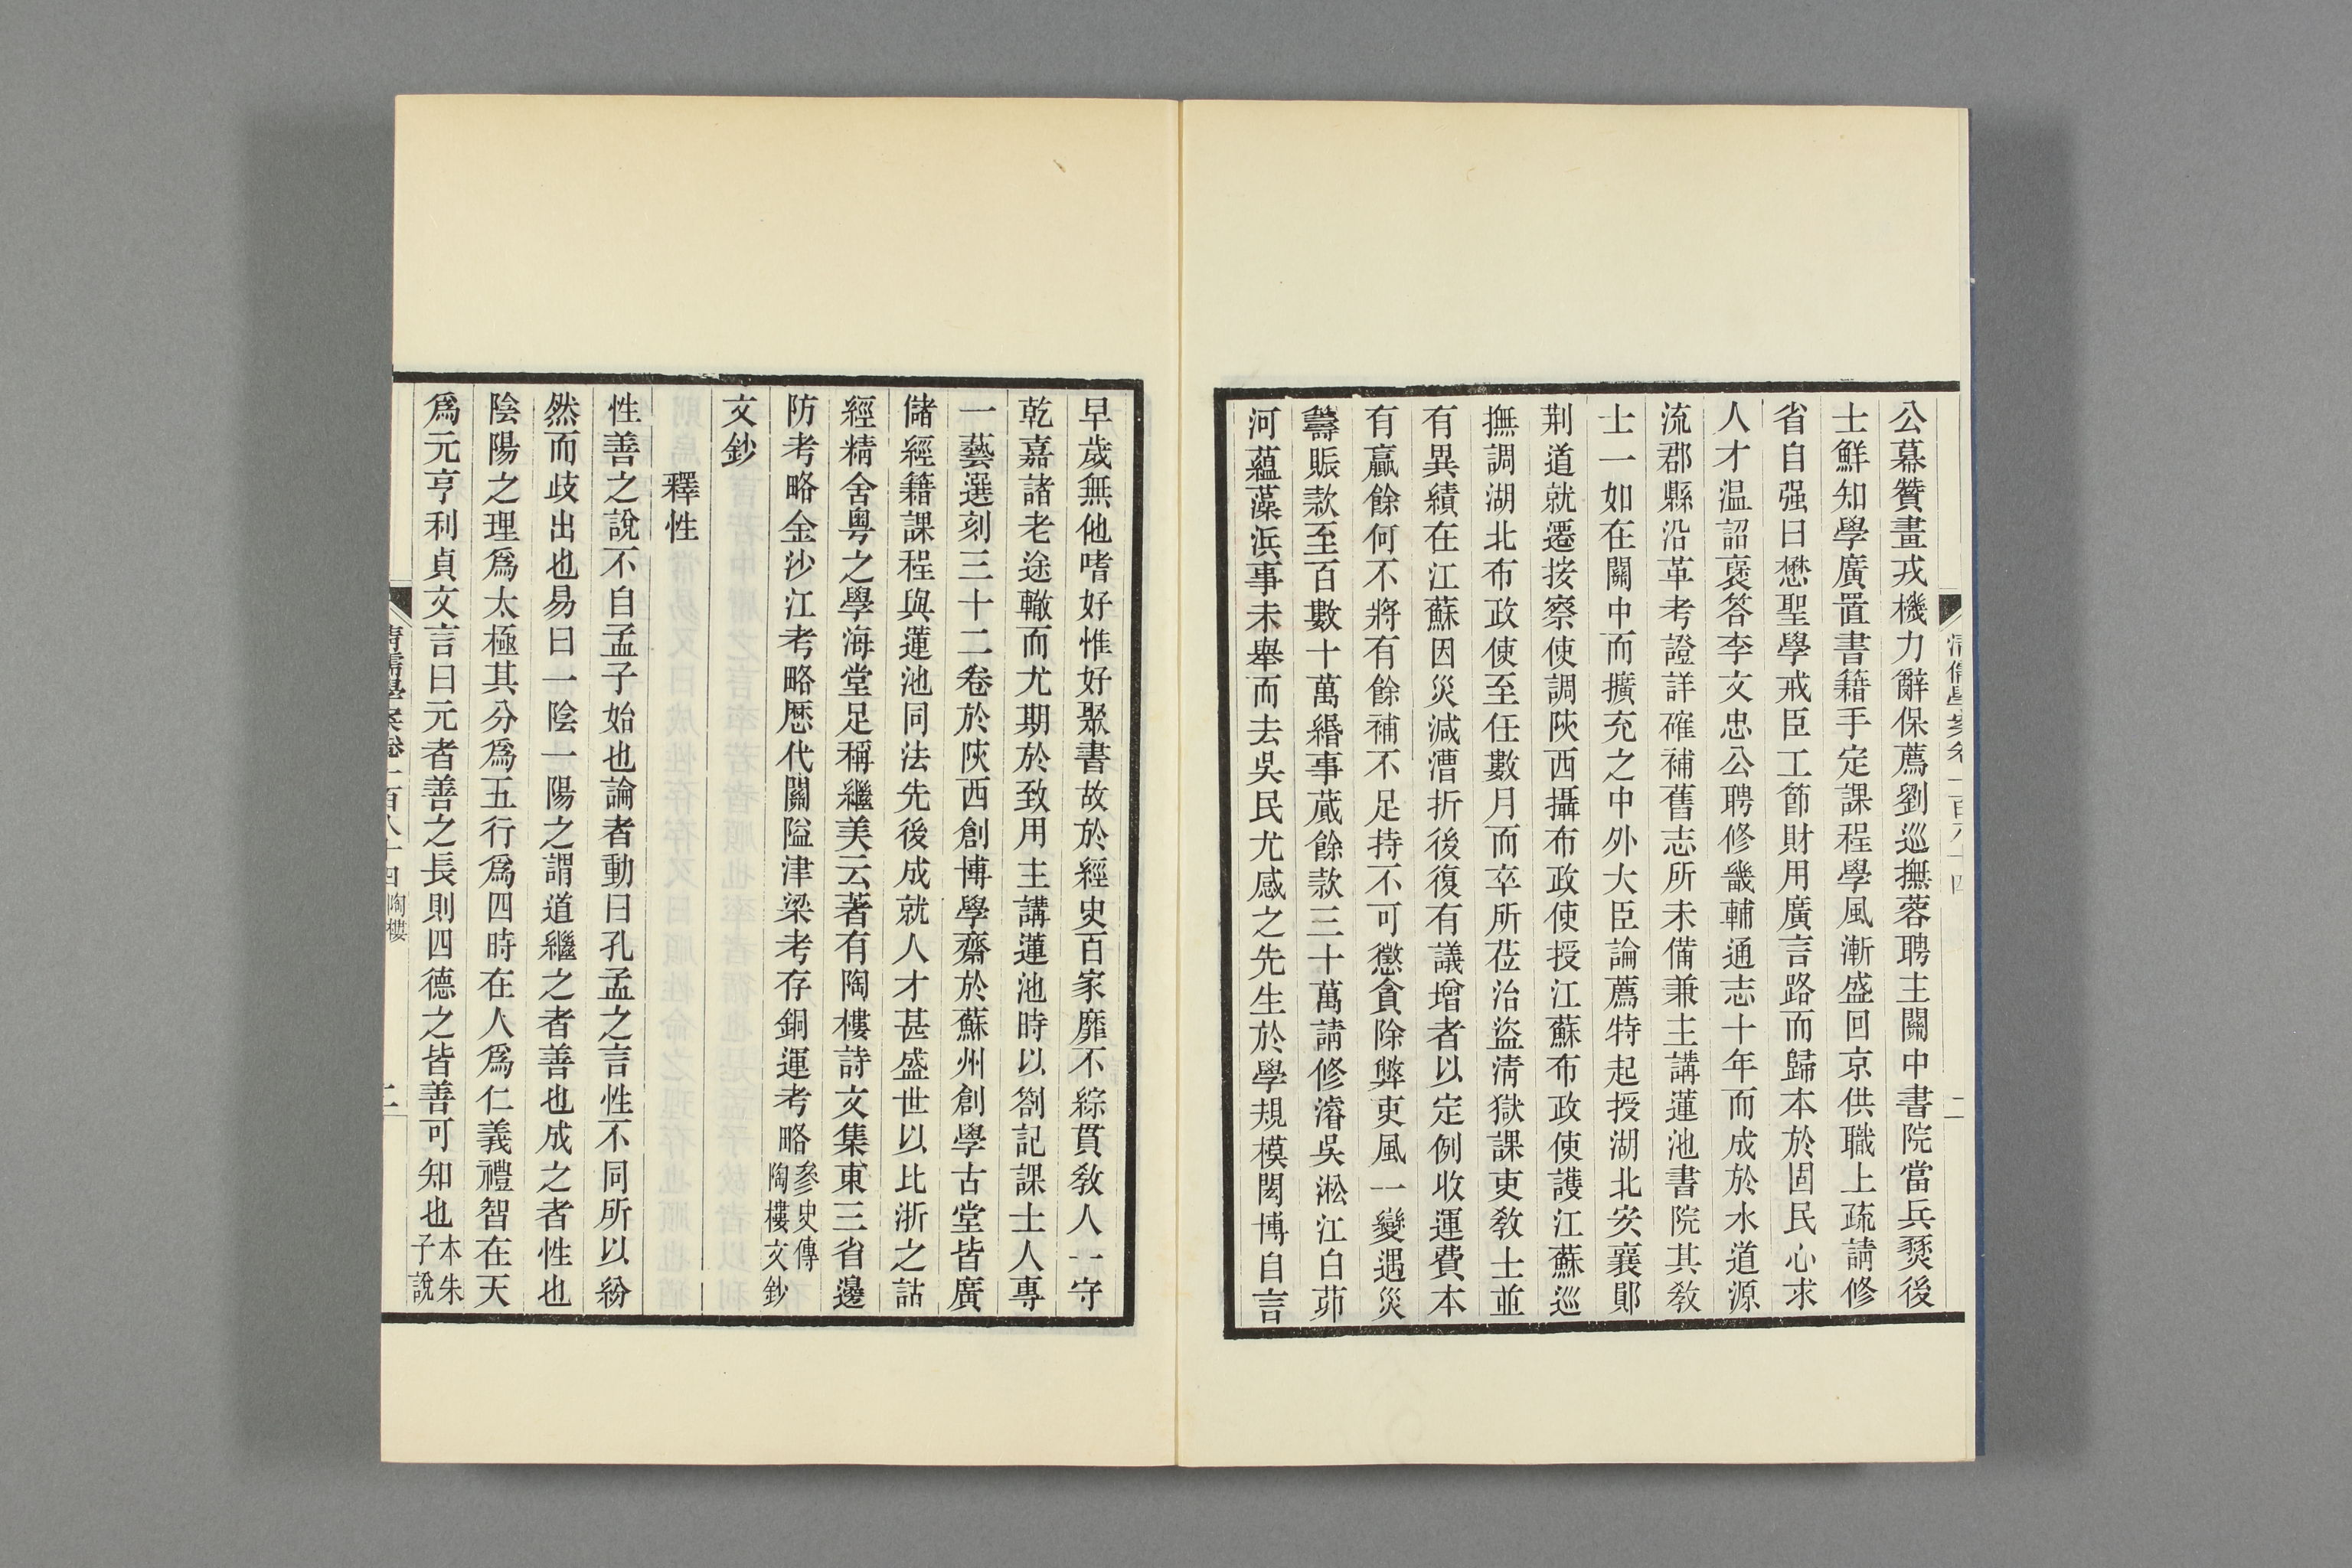 公幕贊畫戎機力辭保薦劉巡撫蓉聘主關中書院當兵燹後
士鮮知學廣置書籍手定課程學風漸盛回京供職上疏請修
省自强曰懋聖學戒臣工節財用廣言路而歸本於固民心求
人才温詔褒答李文忠公聘修畿輔通志十年而成於水道源
流郡縣沿革考證詳確補舊志所未備兼主講蓮池書院其敎
士一如在關中而擴充之中外大臣論薦特起授湖北安襄鄖
荆道就遷按察使調陝西攝布政使授江蘇布政使護江蘇巡
撫調湖北布政使至任數月而卒所莅治盜淸獄課吏敎士並
有異績在江蘇因災減漕折後復有議增者以定例收運費本
有贏餘何不將有餘補不足持不可懲貪除弊吏風一變遇災
籌賑款至百數十萬緡事蕆餘款三十萬請修濬吳淞江白茆
河蘊藻浜事未舉而去吳民尤感之先生於學規模閎博自言
早歲無他嗜好惟好聚書故於經史百家靡不綜貫敎人一守
乾嘉諸老途轍而尤期於致用主講蓮池時以劄記課士人專
一藝選刻三十二卷於陝西創博學齋於蘇州創學古堂皆廣
儲經籍課程與蓮池同法先後成就人才甚盛世以比浙之詁
經精舍粤之學海堂足稱繼美云著有陶樓詩文集東三省邊
防考略金沙江考略歷代關隘津梁考存銅運考略參史傳陶樓文鈔
文鈔
釋性
性善之說不自孟子始也論者動曰孔孟之言性不同所以紛
然而歧出也易曰一陰一陽之謂道繼之者善也成之者性也
陰陽之理爲太極其分爲五行爲四時在人爲仁義禮智在天
爲元亨利貞文言曰元者善之長則四德之皆善可知也本朱子說
清儒學案卷一百八十四 陶樓 二